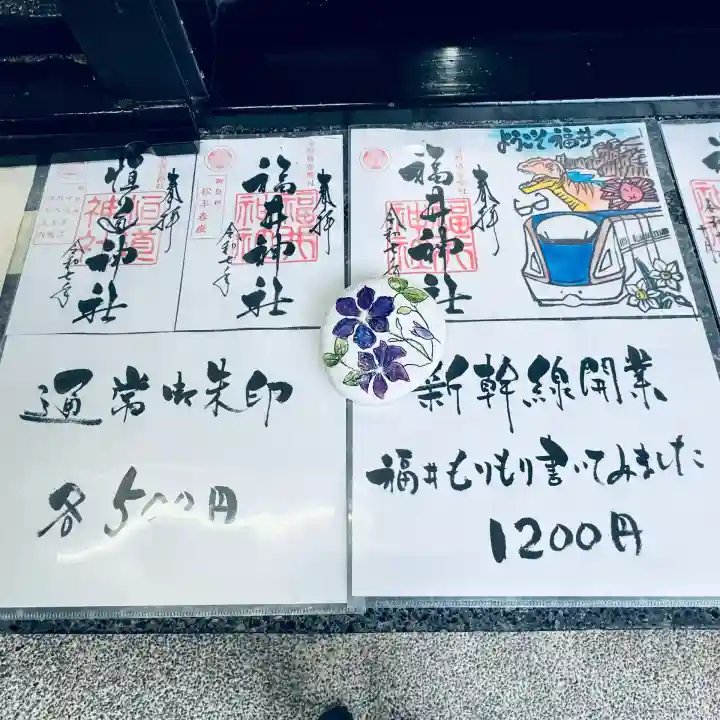 奉拝
恒道神社
令和七年
奉拝
福井神社
御祭神
松平春嶽
令和七年
奉拝
福井神社
ようこそ福井へ
通常御朱印
各500円
新幹線開業
福井もりもり書いてみました
1200円